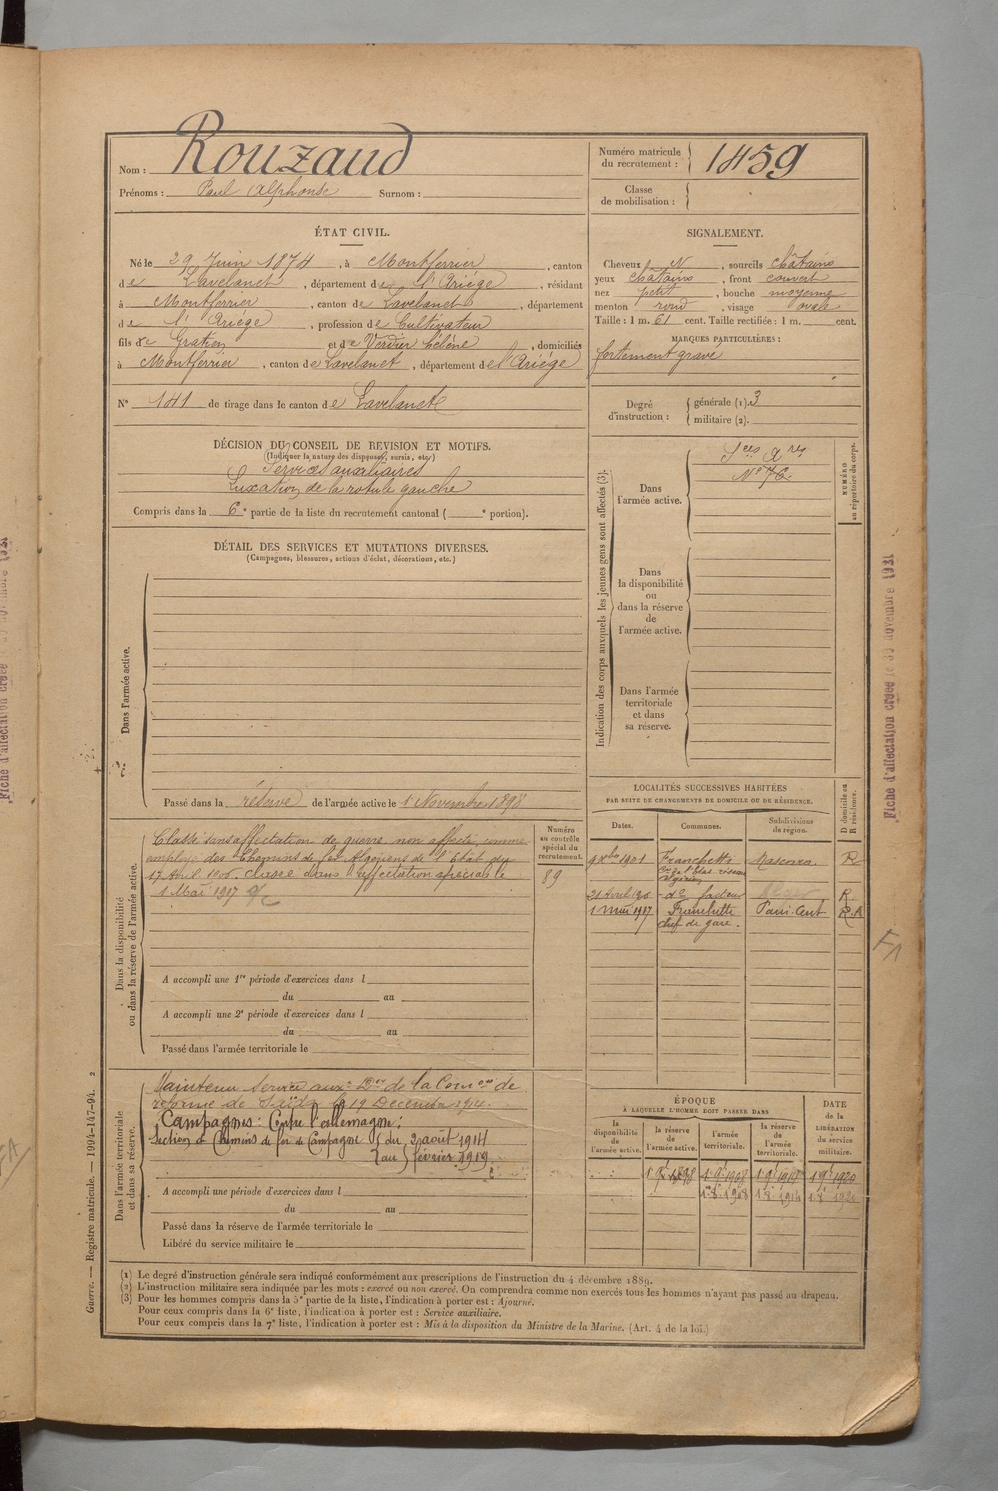 Nom : Rouzaud
Prénoms : Paul Alphonse Surnom :
Numéro matricule du recrutement : 1459
Classe de mobilisation :
ÉTAT CIVIL.
Né le 29 Juin 1874, à Montferrier, canton
de Lavelanet, département de l'Ariége, résidant
à Montferrier, canton de Lavelanet, département
de l'Ariége, profession de Cultivateur
fils de Gratien et de Verdier Hélène, domiciliés
à Montferrier, canton de Lavelanet, département de l'Ariége
N° 141 de tirage dans le canton de Lavelanet
SIGNALEMENT.
Cheveux N, sourcils châtains
yeux châtains, front couvert
nez petit, bouche moyenne
menton rond, visage ovale
Taille : 1 m. 61 cent. Taille rectifiée : 1 m. cent.
MARQUES PARTICULIÈRES :
fortement gravé
Degré d'instruction : générale (1). 3
militaire (2).
DÉCISION DU CONSEIL DE REVISION ET MOTIFS.
(Indiquer la nature des dispenses, sursis, etc.)
Services auxiliaires
Luxation de la rotule gauche
Compris dans la 6e partie de la liste du recrutement cantonal ( e portion).
DÉTAIL DES SERVICES ET MUTATIONS DIVERSES.
(Campagnes, blessures, actions d'éclat, décorations, etc.)
Dans l'armée active.
Passé dans la réserve de l'armée active le 1 Novembre 1898
Indication des corps auxquels les jeunes gens sont affectés (3).
Dans l'armée active.
Sces Ares
N° 76
NUMÉRO au répertoire du corps.
Dans la disponibilité ou dans la réserve de l'armée active.
Dans l'armée territoriale et dans sa réserve.
LOCALITÉS SUCCESSIVES HABITÉES
PAR SUITE DE CHANGEMENTS DE DOMICILE OU DE RÉSIDENCE.
Dates. Communes. Subdivisions de région. D domicile ou R résidence.
1901 Franchetti Mascara R
21 Avril de facteur R
1 mai 1917 Franchette R.A
chef de gare.
Dans la disponibilité ou dans la réserve de l'armée active.
Classé sans affectation de guerre non affecté, comme
employé des Chemins de fer Algériens de l'État du
17 Avril classé dans l'affectation spéciale le
1 Mai 1917
Numéro au contrôle spécial du recrutement.
89
A accompli une 1re période d'exercices dans l
du au
A accompli une 2e période d'exercices dans l
du au
Passé dans l'armée territoriale le
Dans l'armée territoriale et dans sa réserve.
Maintenu Service auxre Don de la Comon de
réforme de Saïda le 19 Décembre 1914.
Campagnes : Contre l'allemagne :
Section de Chemins de fer de Campagne du 2 août 1914
au février 1919
A accompli une période d'exercices dans l
du au
Passé dans la réserve de l'armée territoriale le
Libéré du service militaire le
ÉPOQUE
À LAQUELLE L'HOMME DOIT PASSER DANS
la disponibilité de l'armée active. la réserve de l'armée active. l'armée territoriale. la réserve de l'armée territoriale.
DATE de la LIBÉRATION du service militaire.
1 9e 1898 1 9e 1908 1 9e 1920
1914
(1) Le degré d'instruction générale sera indiqué conformément aux prescriptions de l'instruction du 4 décembre 1889.
(2) L'instruction militaire sera indiquée par les mots : exercé ou non exercé. On comprendra comme non exercés tous les hommes n'ayant pas passé au drapeau.
(3) Pour les hommes compris dans la 5e partie de la liste, l'indication à porter est : Ajourné.
Pour ceux compris dans la 6e liste, l'indication à porter est : Service auxiliaire.
Pour ceux compris dans la 7e liste, l'indication à porter est : Mis à la disposition du Ministre de la Marine. (Art. 4 de la loi.)
Guerre. — Registre matricule. — 1994-147-94. 2
Fiche d'affectation créée le 30 novembre 1921
FA